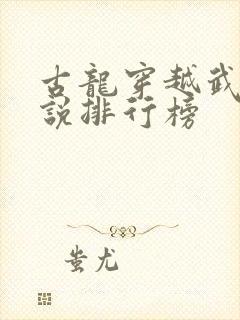 古龍穿越武
說排行榜
蚩尤